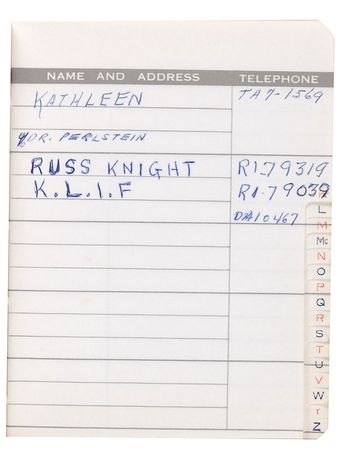 NAME AND ADDRESS TELEPHONE
KATHLEEN TA7-1569
DR. PERLSTEIN
RUSS KNIGHT RI-79319
K.L.I.F RI-79039
DA10467
L
M
Mc
N
O
P
Q
R
S
T
U
V
W
Y
Z